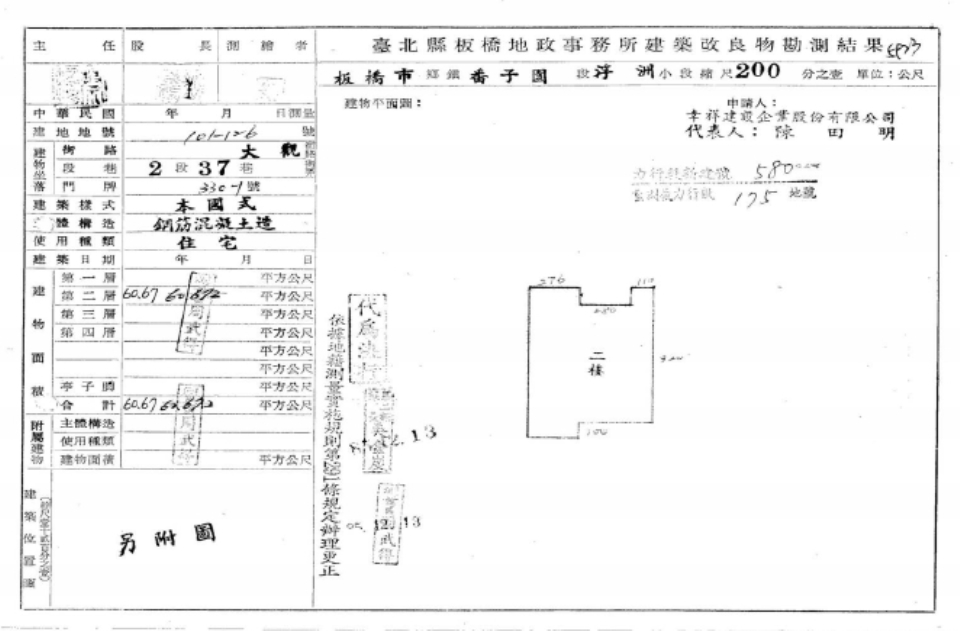 臺北縣板橋地政事務所建築改良物勘測結果
板橋市 鄉鎮 番子園 段 浮洲 小段 縮尺 200 分之壹 單位：公尺
主任 股長 測繪者
中華民國 年 月 日測量
建地地號 101-126 號
建物坐落
街路 大觀
段巷 2段37巷
門牌 330-1號
建築樣式 本國式
主體構造 鋼筋混凝土造
使用種類 住宅
建築日期 年 月 日
建物面積
第一層 平方公尺
第二層 60.67 平方公尺
第三層 平方公尺
第四層 平方公尺
平方公尺
平方公尺
亭子腳 平方公尺
合計 60.67 平方公尺
附屬建物
主體構造
使用種類
建物面積 平方公尺
建築位置圖
另附圖
建物平面圖：
申請人：
幸祥建設企業股份有限公司
代表人：陳田明
580
175 地號
276
二樓
代為決行
12.13
依據地籍測量實施規則第 條規定辦理更正
12.13